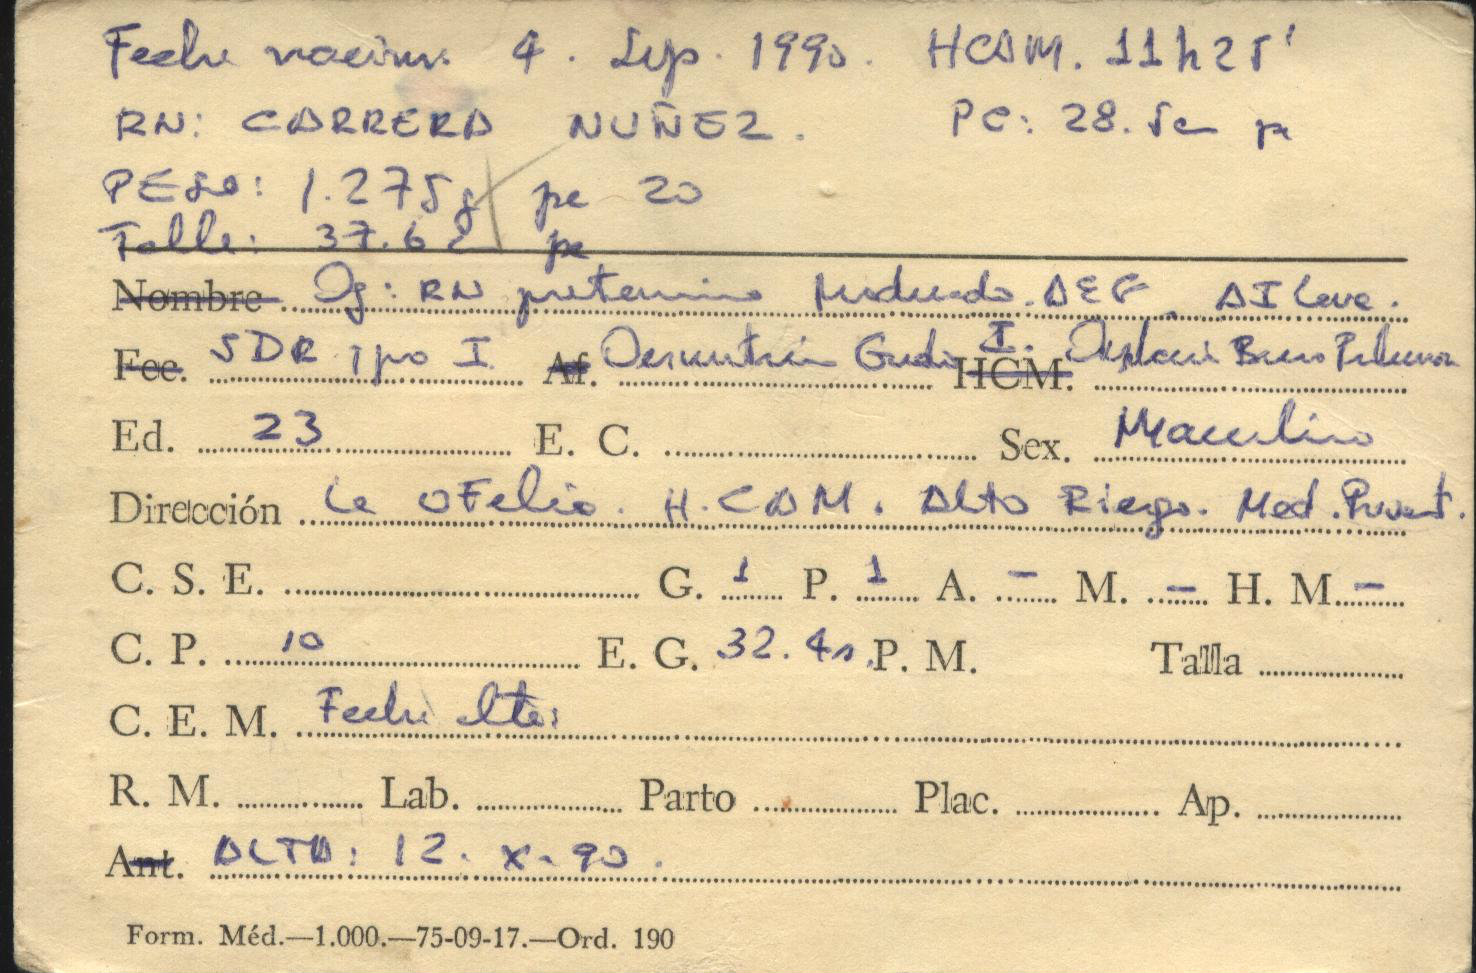 Fecha nacim. 4. Sep. 1990. HCAM. 11h25'
RN: CARRERA NUÑEZ. PC: 28.5c p
PESO: 1.275g pc 20
Talla: 37.6 pc
Nombre Dg: RN pretermino Moderado. AEG. AI Leve.
Fec. SDR Tipo I Af. Desnutrición Grado I. HCM. Displasia Bronco Pulmonar
Ed. 23 E. C. Sex. Masculino
Dirección La OFelia. H.CAM. Alto Riesgo. Med. Prevent.
C. S. E. G. 1 P. 1 A. – M. – H. M. –
C. P. 10 E. G. 32.4s. P. M. Talla
C. E. M. Fecha alta:
R. M. Lab. Parto Plac. Ap.
Ant. ALTA: 12. X-90.
Form. Méd.—1.000.—75-09-17.—Ord. 190